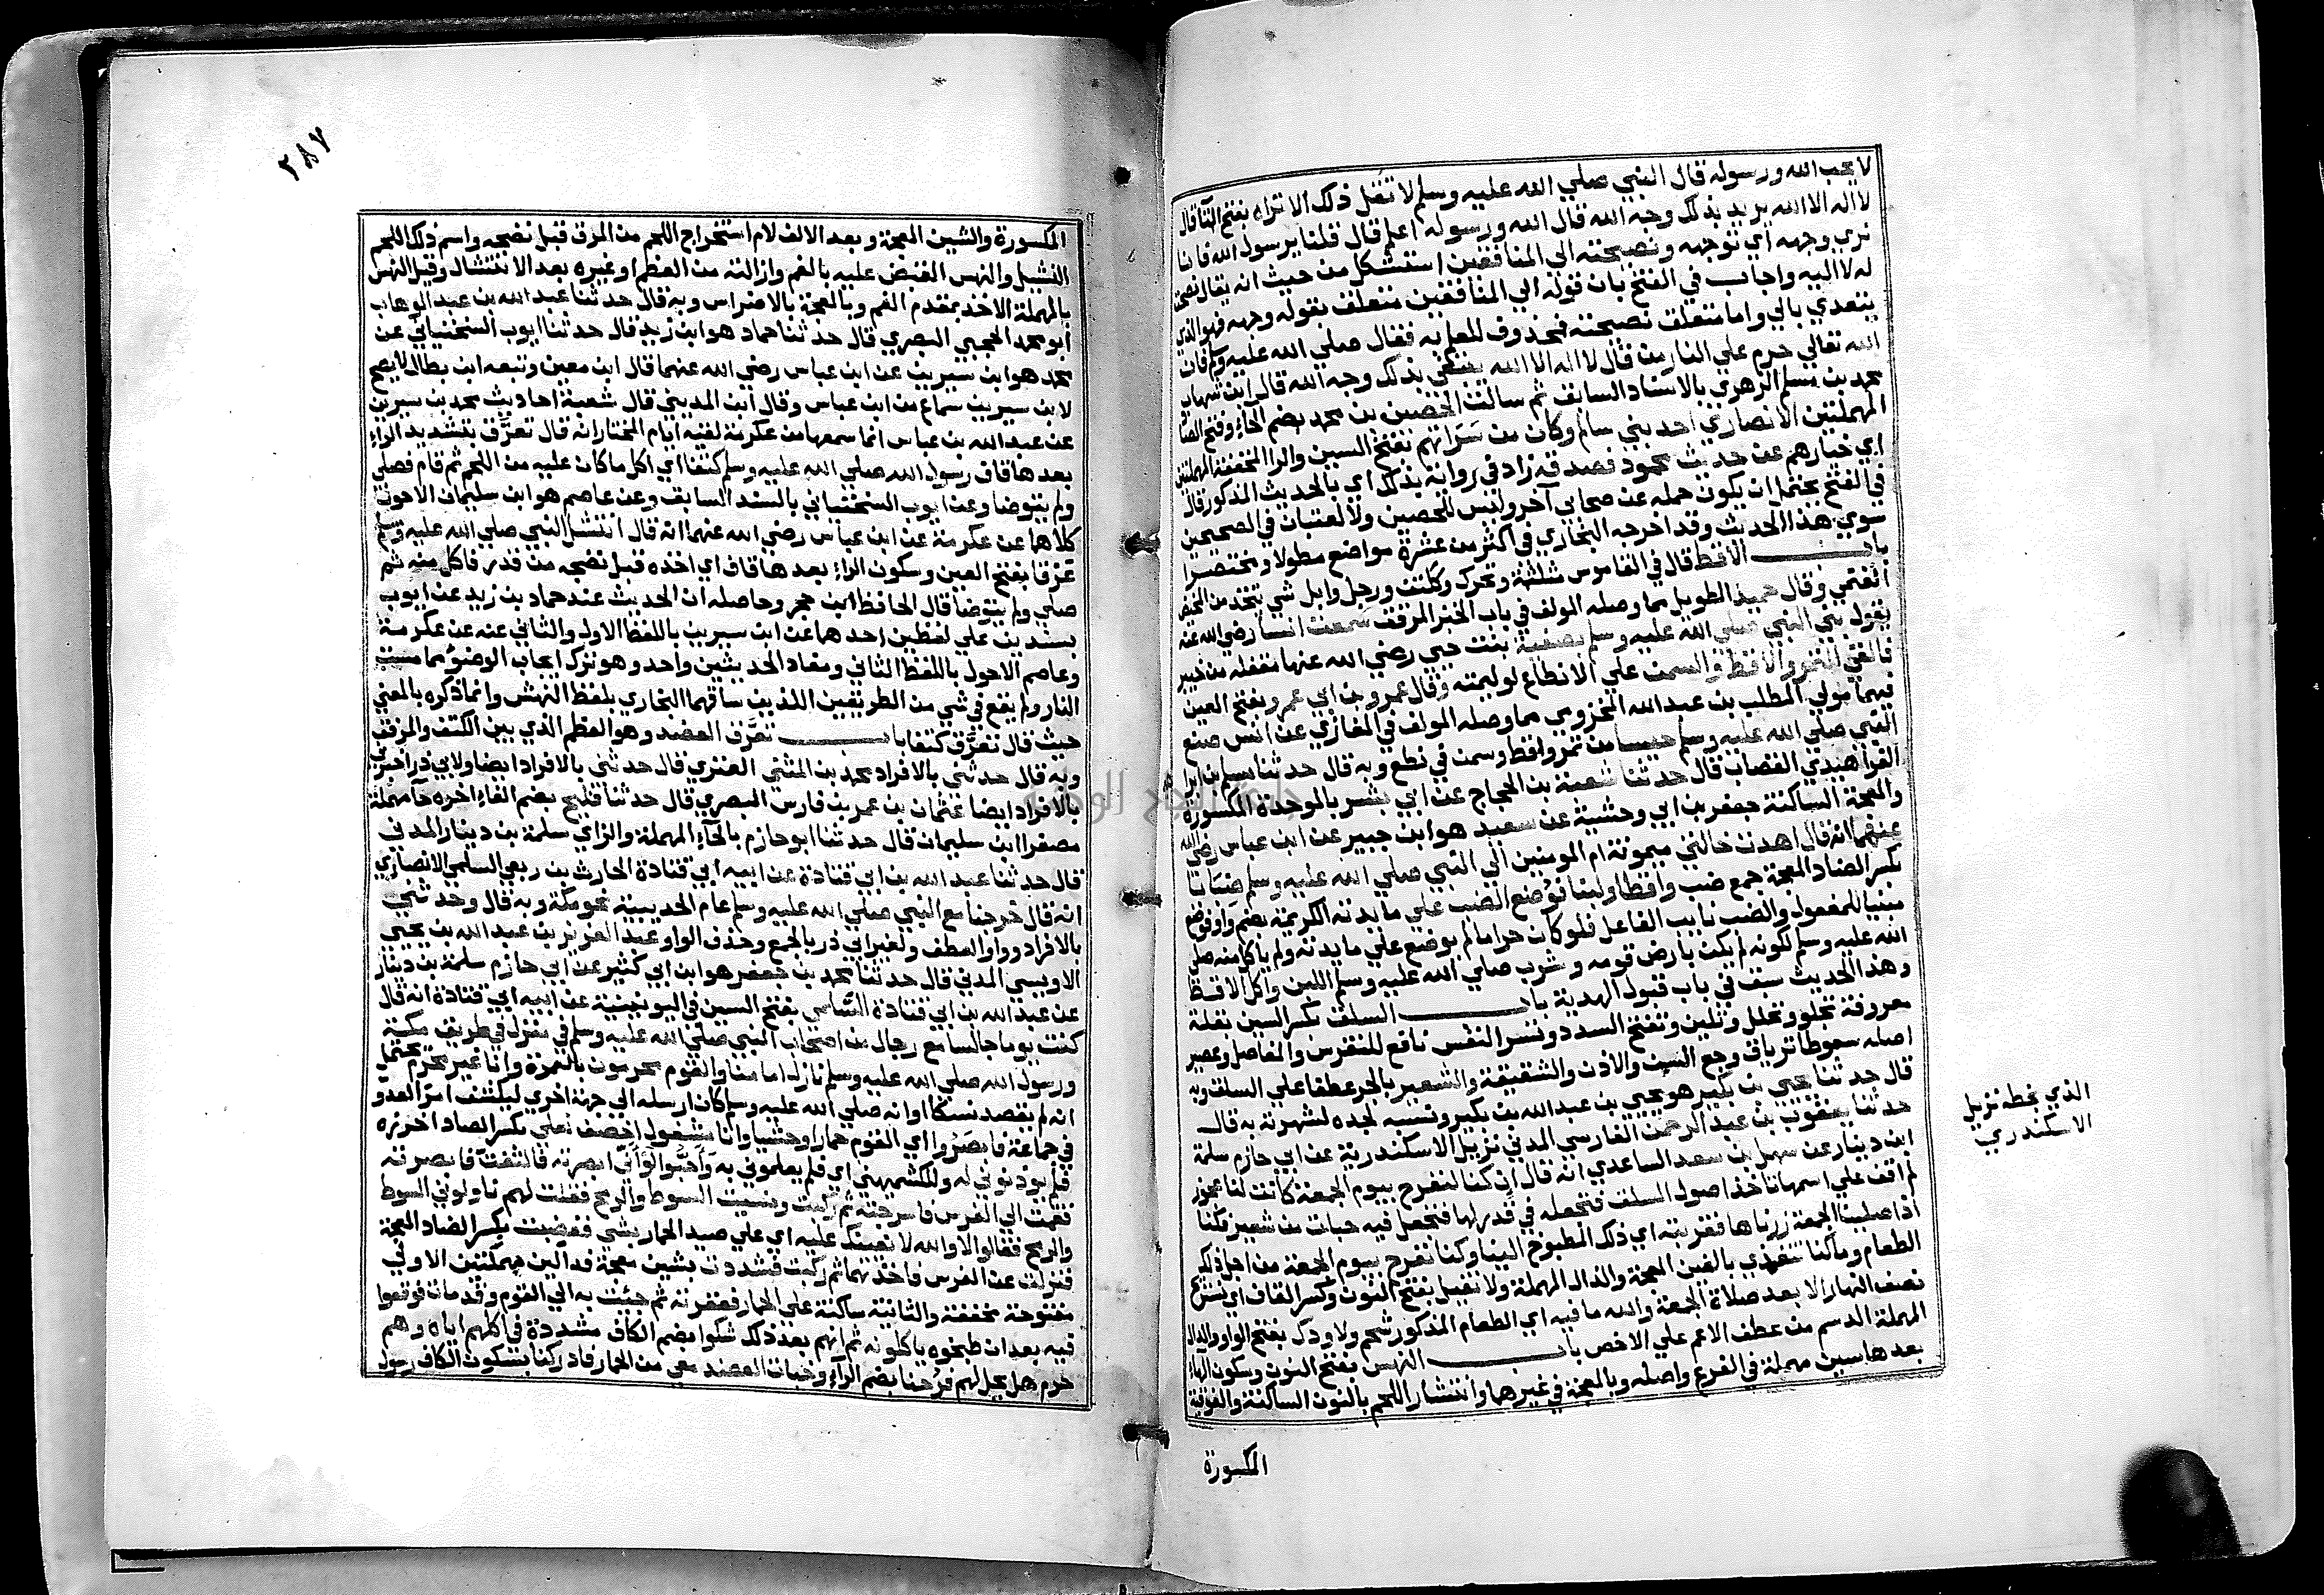 لا يحب الله ورسوله قال النبي صلي الله عليه وسلم لا تقل ذلك الا تراه بفتح التا قال
لا اله الا الله يريد بذلك وجه الله قال الله ورسوله اعلم قال قلنا يرسول الله فانا
نري وجهه اي توجهه ونصيحته الي المنافقين استشكل من حيث انه يقال نصحت
له لا اليه واجاب في الفتح بان قوله الي المنافقين متعلق بقوله وجهه فهو الذي
يتعدي بالي واما متعلق نصيحته فمحذوف للعلم به فقال صلي الله عليه وسلم فان
الله تعالي حرم علي النار من قال لا اله الا الله يبتغي بذلك وجه الله قال ابن شهاب
محمد بن مسلم الزهري بالاسناد السابق ثم سالت الحصين بن محمد بضم الحاء وفتح الصاد
المهملتين الانصاري احد بني سالم وكان من سراتهم بفتح السين والرا المخففة المهملتين
اي خيارهم عن حديث محمود فصدقه زاد في رواية بذلك اي بالحديث المذكور قال
في الفتح يحتمل ان يكون حمله عن صحابي آخر وليس للحصين ولا لعتبان في الصحيحين
سوي هذا الحديث وقد اخرجه البخاري في اكثر من عشرة مواضع مطولا ومختصرا
باب الاقط قال في القاموس مثلثة وتحرك وككتف ورجل وابل شي يتخذ من المخيض
الغنمي وقال حميد الطويل مما وصله المولف في باب الخبز المرقق سمعت انسا رضي الله عنه
يقول بني النبي صلي الله عليه وسلم بصفية بنت حيي رضي الله عنها مقفله من خيبر
فالقي التمر والاقط والسمن علي الانطاع لوليمته وقال عمرو بن ابي عمرو بفتح العين
فيهما مولي المطلب بن عبد الله المخزومي مما وصله المولف في المغازي عن انس صنع
النبي صلي الله عليه وسلم حيسا من تمر واقط وسمن في نطع وبه قال حدثنا مسلم بن ابراهيم
الفراهيدي القصاب قال حدثنا شعبة بن الحجاج عن ابي بشر بالموحدة المكسورة
والمعجمة الساكنة جعفر بن ابي وحشية عن سعيد هو ابن جبير عن ابن عباس رضي الله
عنهما انه قال اهدت خالتي ميمونة ام المومنين الي النبي صلي الله عليه وسلم ضبابا
بكسر الضاد المعجمة جمع ضب واقطا ولبنا فوضع الضب علي مايدته الكريمة بضم واو فوضع
مبنيا للمفعول والضب نايب الفاعل فلو كان حراما لم يوضع علي مايدته ولم ياكل منه صلي
الله عليه وسلم لكونه لم يكن بارض قومه وشرب صلي الله عليه وسلم اللبن واكل الاقط
وهذا الحديث سبق في باب قبول الهدية باب السلق بكسر السين بقلة
معروفة تجلو وتحلل وتلين وتفتح السدد وتسر النفس نافع للنقرس والمفاصل وعصير
اصله سعوطا ترياق وجع السن والاذن والشقيقة والشعير بالجر عطفا علي السلق وبه
قال حدثنا يحيي بن بكير هو يحيي بن عبد الله بن بكير ونسبه لجده لشهرته به قال
حدثنا يعقوب بن عبد الرحمن الفارسي المدني نزيل الاسكندرية عن ابي حازم سلمة
ابن دينار عن سهل بن سعد الساعدي انه قال ان كنا لنفرح بيوم الجمعة كانت لنا عجوز
لم اقف علي اسمها تاخذ اصول السلق فتجعله في قدر لها فتجعل فيه حبات من شعير فكنا
اذا صلينا الجمعة زرناها فقربته اي ذلك المطبوخ الينا وكنا نفرح بيوم الجمعة من اجل ذلك
الطعام وما كنا نتغدي بالغين المعجمة والدال المهملة ولا نقيل بفتح النون وكسر القاف اي نستريح
نصف النهار الا بعد صلاة الجمعة والله ما فيه اي الطعام المذكور شحم ولا ودك بفتح الواو والدال
المهملة الدسم من عطف الاعم علي الاخص باب النهس بفتح النون وسكون الهاء
بعدها سين مهملة في الفرع واصله وبالمعجمة في غيرهما وانتشار اللحم بالنون الساكنة والفوقية
المكسورة
الذي بخطه نزيل
الاسكندري
٢٨٧
المكسورة والشين المعجمة وبعد الالف لام استخراج اللحم من المرق قبل نضجه واسم ذلك اللحم
النشيل والنهس القبض عليه بالفم وازالته من العظم او غيره بعد الانتشال وقيل النهس
بالمهملة الاخذ بمقدم الفم وبالمعجمة بالاضراس وبه قال حدثنا عبد الله بن عبد الوهاب
ابو محمد الحجبي البصري قال حدثنا حماد هو ابن زيد قال حدثنا ايوب السختياني عن
محمد هو ابن سيرين عن ابن عباس رضي الله عنهما قال ابن معين وتبعه ابن بطال لا يصح
لابن سيرين سماع من ابن عباس وقال ابن المديني قال شعبة احاديث محمد بن سيرين
عن عبد الله بن عباس انما سمعها من عكرمة لقيه ايام المختار انه قال تعرق بتشديد الراء
بعدها قاف رسول الله صلي الله عليه وسلم كتفا اي اكل ما كان عليه من اللحم ثم قام فصلي
ولم يتوضا وعن ايوب السختياني بالسند السابق وعن عاصم هو ابن سليمان الاحول
كلاهما عن عكرمة عن ابن عباس رضي الله عنهما انه قال انتشل النبي صلي الله عليه وسلم
عرقا بفتح العين وسكون الراء بعدها قاف اي اخذه قبل نضجه من قدر فاكل منه ثم
صلي ولم يتوضا قال الحافظ ابن حجر وحاصله ان الحديث عند حماد بن زيد عن ايوب
بسندين علي لفظين احدهما عن ابن سيرين باللفظ الاول والثاني عنه عن عكرمة
وعاصم الاحول باللفظ الثاني ومفاد الحديثين واحد وهو ترك ايجاب الوضو مما مست
النار ولم يقع في شي من الطريقين اللذين ساقهما البخاري بلفظ النهش وانما ذكره بالمعني
حيث قال تعرق كتفا باب تعرق العضد وهو العظم الذي بين الكتف والمرفق
وبه قال حدثني بالافراد محمد بن المثني العنزي قال حدثني بالافراد ايضا ولابي ذر اخبرني
بالافراد ايضا عثمان بن عمر بن فارس البصري قال حدثنا فليح بضم الفاء اخره حا مهملة
مصغرا ابن سليمان قال حدثنا ابو حازم بالحاء المهملة والزاي سلمة بن دينار المدني
قال حدثنا عبد الله بن ابي قتادة عن ابيه ابي قتادة الحارث بن ربعي السلمي الانصاري
انه قال خرجنا مع النبي صلي الله عليه وسلم عام الحديبية نحو مكة وبه قال وحدثني
بالافراد وواو العطف ولغير ابي ذر بالجمع وحذف الواو عبد العزيز بن عبد الله بن يحيي
الاويسي المدني قال حدثنا محمد بن جعفر هو ابن ابي كثير عن ابي حازم سلمة بن دينار
عن عبد الله بن ابي قتادة السلمي بفتح السين في اليونينية عن ابيه ابي قتادة انه قال
كنت يوما جالسا مع رجال من اصحاب النبي صلي الله عليه وسلم في منزل في طريق مكة
ورسول الله صلي الله عليه وسلم نازل امامنا والقوم محرمون بالعمرة وانا غير محرم يحتمل
انه لم يقصد نسكا او انه صلي الله عليه وسلم كان ارسله الي جهة اخري ليكشف امر العدو
في جماعة فابصروا اي القوم حمارا وحشيا وانا مشغول اخصف نعلي بكسر الصاد اخرزه
فلم يوذنوني له وللكشميهني اي فلم يعلموني به واحبوا لو اني ابصرته فالتفت فابصرته
فقمت الي الفرس فاسرجته ثم ركبت ونسيت السوط والرمح فقلت لهم ناولوني السوط
والرمح فقالوا لا والله لا نعينك عليه اي علي صيد الحمار بشي فغضبت بكسر الضاد المعجمة
فنزلت عن الفرس فاخذتهما ثم ركبت فشددت بشين معجمة فدالين مهملتين الاولي
مفتوحة مخففة والثانية ساكنة علي الحمار فعقرته ثم جئت به الي القوم وقد مات فوقعوا
فيه بعد ان طبخوه ياكلونه ثم انهم بعد ذلك شكوا بضم الكاف مشددة في اكلهم اياه وهم
حرم هل يحل لهم فرحنا بضم الراء وخبات العضد معي من الحمار فادركنا بسكون الكاف رسول